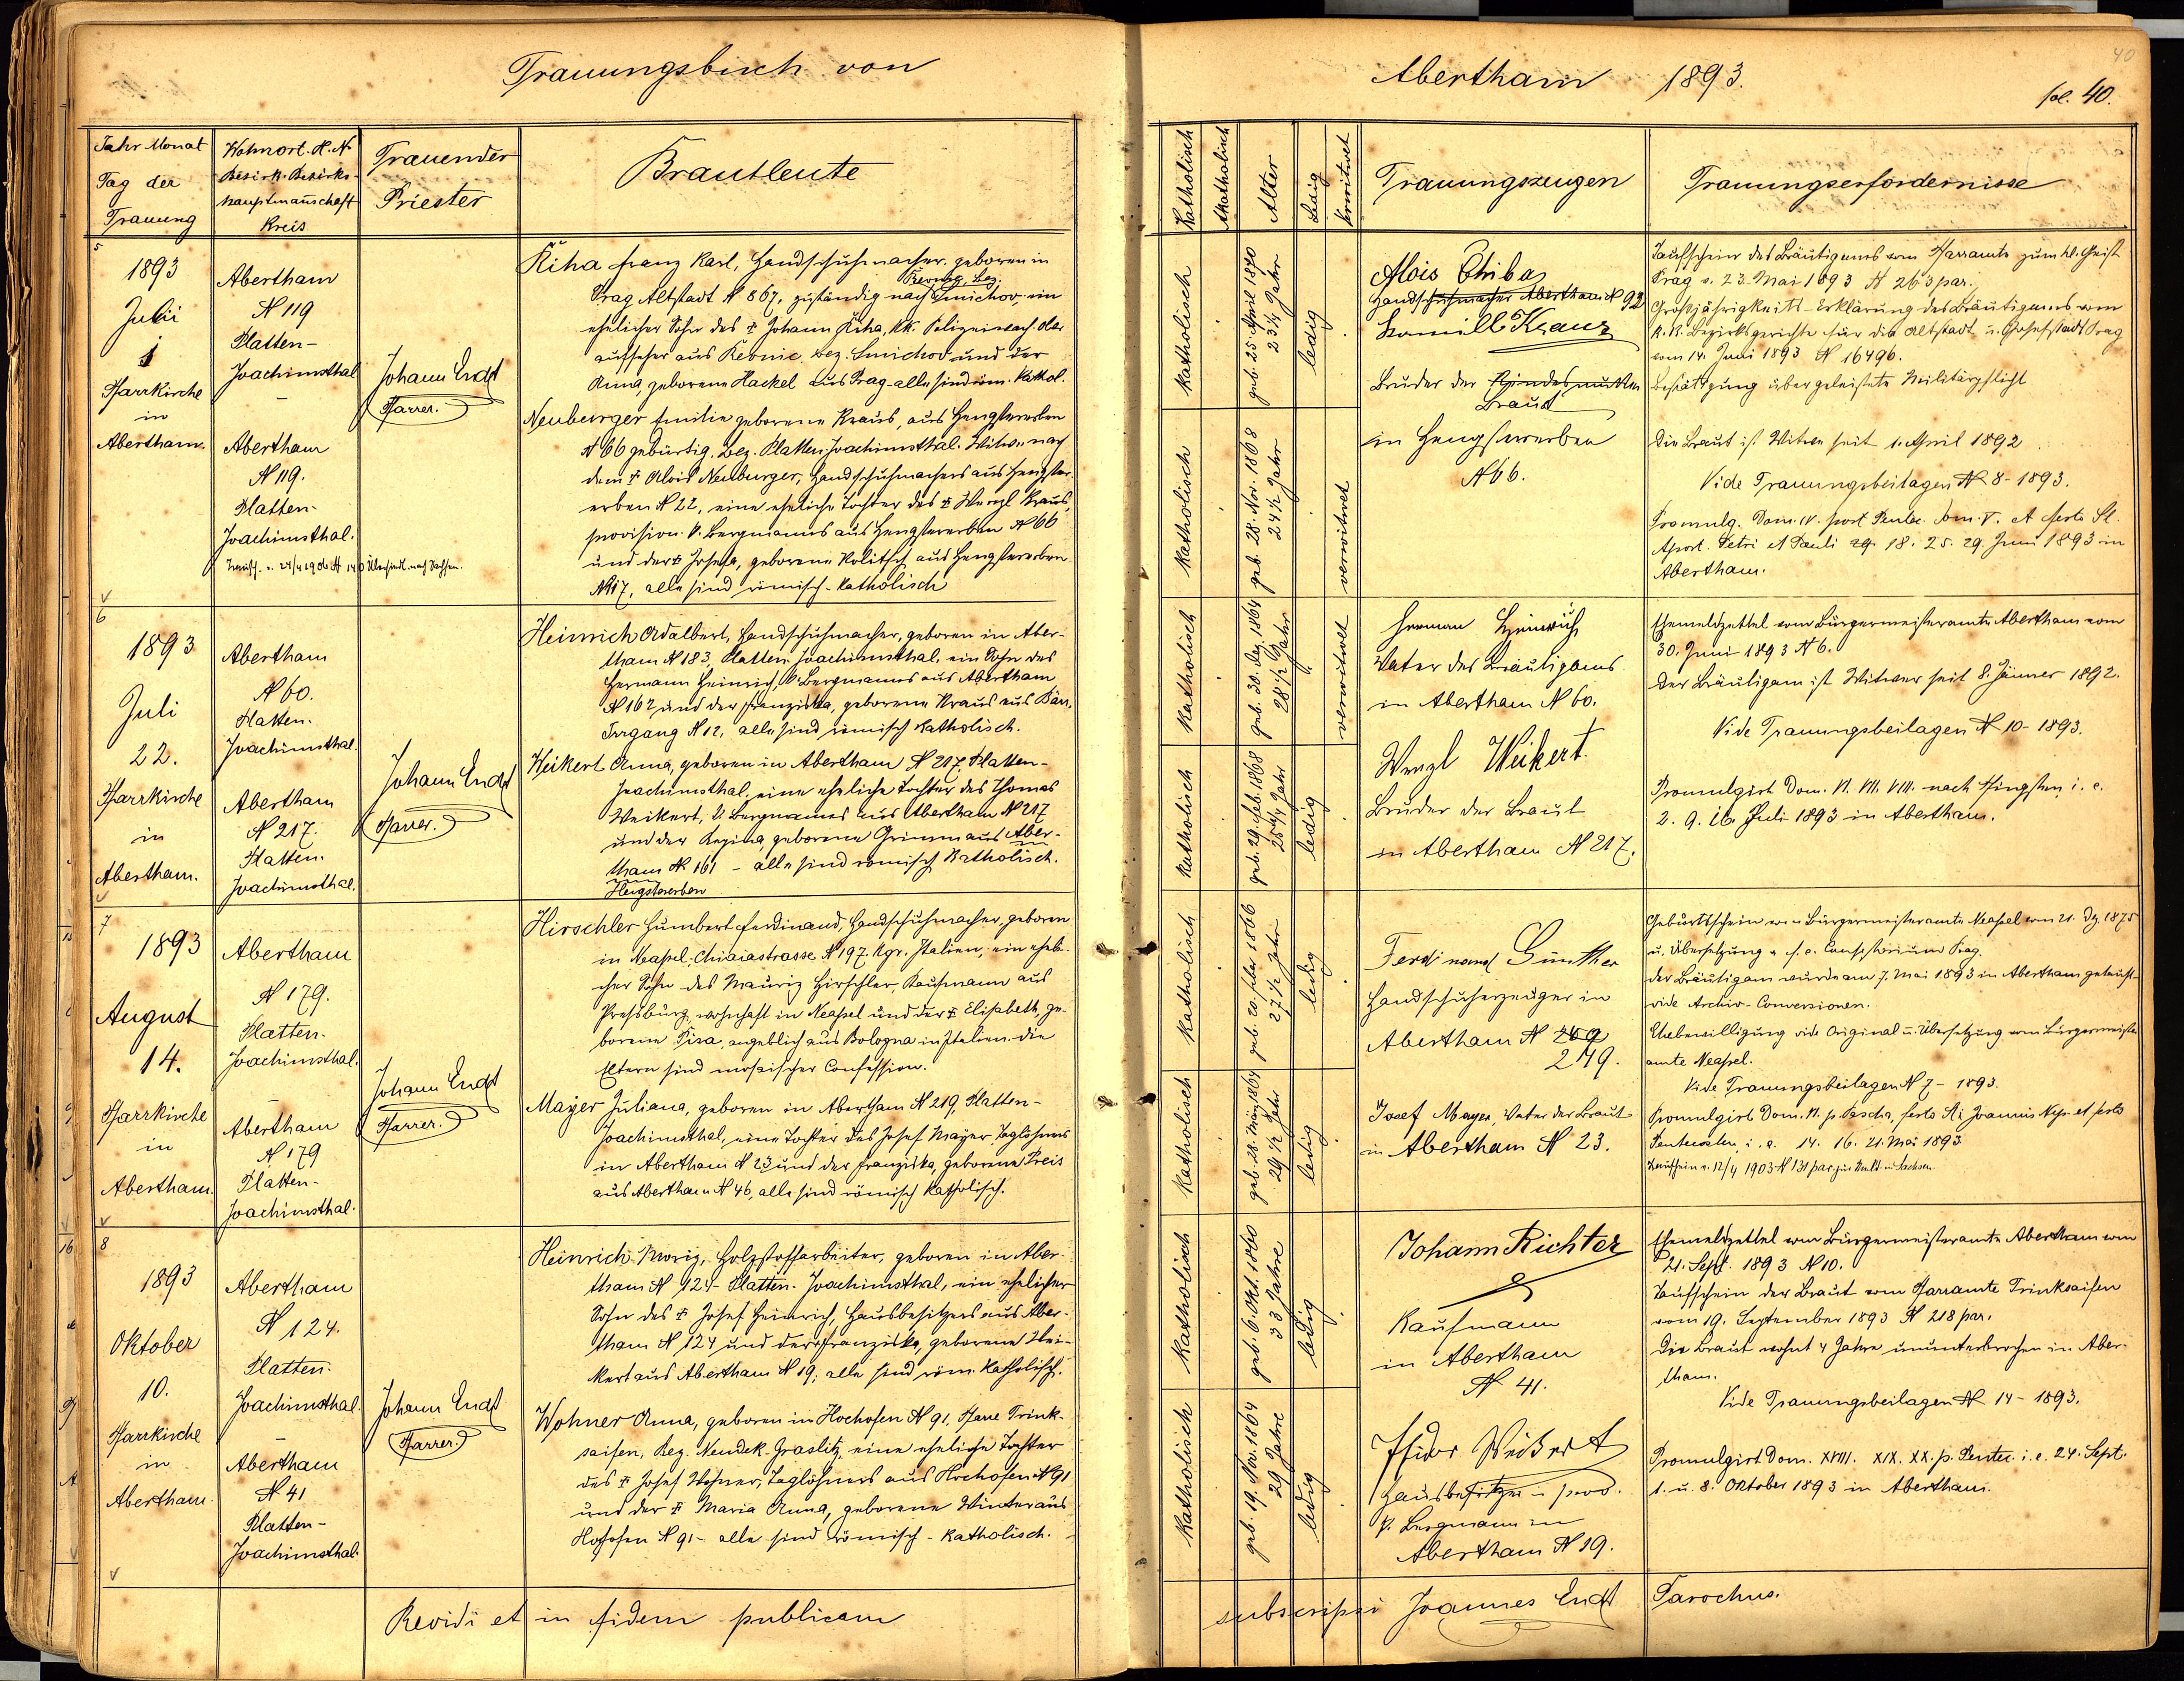 Trauungsbuch von
Jahr Monat
Tag der
Trauung
Wohnort. H. N.
Bezirk. Bezirks-
hauptmannschaft
Kreis
Trauender
Priester
Brautleute
5
1893
Julii
1
Pfarrkirche
in
Abertham.
Abertham
N 119
Platten-
Joachimsthal
–
Abertham
N 119.
Platten-
Joachimsthal.
Johann Endt
Pfarrer.
Řiha Franz Karl, Handschuhmacher, geboren in
Prag Altstadt N 867, zuständig nach Smichov, ein
ehelicher Sohn des ☦ Johann Řiha, kk. Polizeiwach. Ober
aufseher aus Řevnic bez. Smichov und der
Anna, geborene Hackel aus Prag - alle sind röm. Kathol.
Neuburger Emilie geborene Kraus, aus Hengstererben
N 66 gebürtig, Bez. Platten Joachimsthal. Witwe nach
dem ☦ Alois Neuburger, Handschuhmachers aus Hengster-
erben N 22, eine eheliche Tochter des ☦ Wenzl Kraus,
provision. k. Bergmanns aus Hengstererben N 66
und der ☦ Josefa, geborene Kolitsch aus Hengstererben
N 17, alle sind römisch-katholisch
6
1893
Juli
22.
Pfarrkirche
in
Abertham.
Abertham
N 60.
Platten.
Joachimsthal.
Abertham
N 217.
Platten.
Joachimsthal.
Johann Endt
Pfarrer.
Heinrich Adalbert, Handschuhmacher, geboren in Aber-
tham N 183, Platten Joachimsthal, ein Sohn des
Hermann Heinrich, k. Bergmannes aus Abertham
N 162 und der Franziska, geborene Kraus aus Bär.
N 12, alle sind römisch katholisch.
Weikert Anna, geboren in Abertham N 217, Platten-
Joachimsthal, eine eheliche Tochter des Thomas
Weikert, k. Bergmannes aus Abertham N 217
und der Regina, geborene Grimm aus Aber-
tham N 161 – alle sind römisch katholisch.
Hengstererben
7
1893
August
14.
Pfarrkirche
in
Abertham.
Abertham
N 179.
Platten-
Joachimsthal.
Abertham
N 179
Platten-
Joachimsthal.
Johann Endt
Pfarrer.
Hirschler Humbert Ferdinand, Handschuhmacher, geboren
in Neapel, Chiaiastrasse N 197. Kgr. Italien, ein eheli-
cher Sohn des Mauriz Hirschler, Kaufmann aus
Pressburg, wohnhaft in Neapel und der ☦ Elisabeth, ge-
borene Pisa, angeblich aus Bologna in Italien. Die
Eltern sind mosaischer Confession.
Mayer Juliana, geboren in Abertham N 219, Platten-
Joachimsthal, eine Tochter des Josef Mayer, Taglöhners
in Abertham N 23 und der Franziska, geborene Preis
aus Abertham N 46, alle sind römisch katholisch.
8
1893
Oktober
10.
Pfarrkirche
in
Abertham.
Abertham
N 124.
Platten.
Joachimsthal.
–
Abertham
N 41
Platten-
Joachimsthal.
Johann Endt
Pfarrer.
Heinrich Moriz, Holzstoffarbeiter, geboren in Aber-
tham N 124 - Platten. Joachimsthal, ein ehelicher
Sohn des ☦ Josef Heinrich, Hausbesitzers aus Aber-
tham N 124 und der ☦ Franziska, geborene Wei-
kert aus Abertham N 19; alle sind röm. katholisch.
Wohner Anna, geboren in Hochofen N 91. Pfarre Trink-
saifen, Bez. Neudek-Graslitz, eine eheliche Tochter
des ☦ Josef Wohner, Taglöhners aus Hochofen N 91
und der ☦ Maria Anna, geborene Winter aus
Hochofen N 91 - alle sind römisch-katholisch.
Revidi et in fidem publicam
Abertham 1893.
40
fol. 40.
Katholisch
Akatholisch
Alter
Ledig
Verwitwet
Trauungszeugen
Trauungserfordernisse
Katholisch
geb. 25. April 1870
23 1/4 Jahr
ledig
Alois Chiba
Handschuhmacher Abertham N 92
Komill Kraus
Bruder der Kindesmutter
Braut
in Hengstererben
N 66.
Taufschein des Bräutigams vom Pfarramte zum hl. Geist
Prag v. 23. Mai 1893 N 263 par.
Großjährigkeits-Erklärung des Bräutigams vom
k. k. Bezirksgerichte für die Altstadt u. Josefstadt Prag
vom 14. Juni 1893 N 16496.
Bestätigung über geleistete Militärpflicht
Katholisch
geb. 28. Nov. 1868
24 1/2 Jahr
verwitwet
Die Braut ist Witwe seit 1. April 1892.
Vide Trauungsbeilagen N 8 - 1893.
Promulg. Dom. IV. post Pentec. Dom. V. et festo St.
Apost. Petri et Pauli 18. 25. 29. Juni 1893 in
Abertham.
Katholisch
geb. 30. Dez. 1864
28 1/2 Jahr
verwitwet
Herman Heinrich
Vater des Bräutigams
in Abertham N 60.
Ehemeldzettel vom Bürgermeisteramte Abertham vom
30. Juni 1893 N 6.
Der Bräutigam ist Witwer seit 8. Jänner 1892.
Vide Trauungsbeilagen N 10 - 1893.
Katholisch
geb. 29. Feb. 1868
25 1/4 Jahr
ledig
Wenzl Weikert.
Bruder der Braut
in Abertham N 217.
Promulgirt Dom. VI. VII. VIII. nach Pfingsten, i. e.
2. 9. 16. Juli 1893 in Abertham.
Katholisch
27 1/2 Jahr
ledig
Ferdinand Günther
Handschuherzeuger in
Abertham N 259
249.
Geburtsschein vom Bürgermeisteramte Neapel vom 21. Dez 1875
u. Übersetzung v. f. e. Consistorium Prag.
Der Bräutigam wurde am 7. Mai 1893 in Abertham getauft
vide Archiv-Conversionen.
Ehebewilligung vide Original u. Übersetzung vom Bürgermeister
amte Neapel.
Vide Trauungsbeilagen N 7 - 1893.
Katholisch
29 1/2 Jahr
ledig
Josef Mayer, Vater der Braut
in Abertham N 23.
Promulgirt Dom. VI. p. Pascha, festo St. Joannis Nep. et festo
Pentecostes, i. e. 14. 16. 21. Mai 1893
Katholisch
geb. 6. Okt. 1860
33 Jahre
ledig
Johann Richter
Kaufmann
in Abertham
N 41.
Ehemeldzettel vom Bürgermeisteramte Abertham vom
21. Sept. 1893 N 10.
Taufschein der Braut vom Pfarramte Trinksaifen
vom 19. September 1893 N 218 par.
Die Braut wohnt 4 Jahre ununterbrochen in Aber-
tham.
Vide Trauungsbeilagen N 14 - 1893.
Katholisch
geb. 19. Nov. 1864
29 Jahre
ledig
Isidor Weikert
Hausbesitzer u. prov.
k. Bergmann in
Abertham N 19.
Promulgirt Dom. XVIII. XIX. XX. p. Pentec. i. e. 24. Sept.
1. u. 8. Oktober 1893 in Abertham.
subscripsi Joannes Endt Parochus.